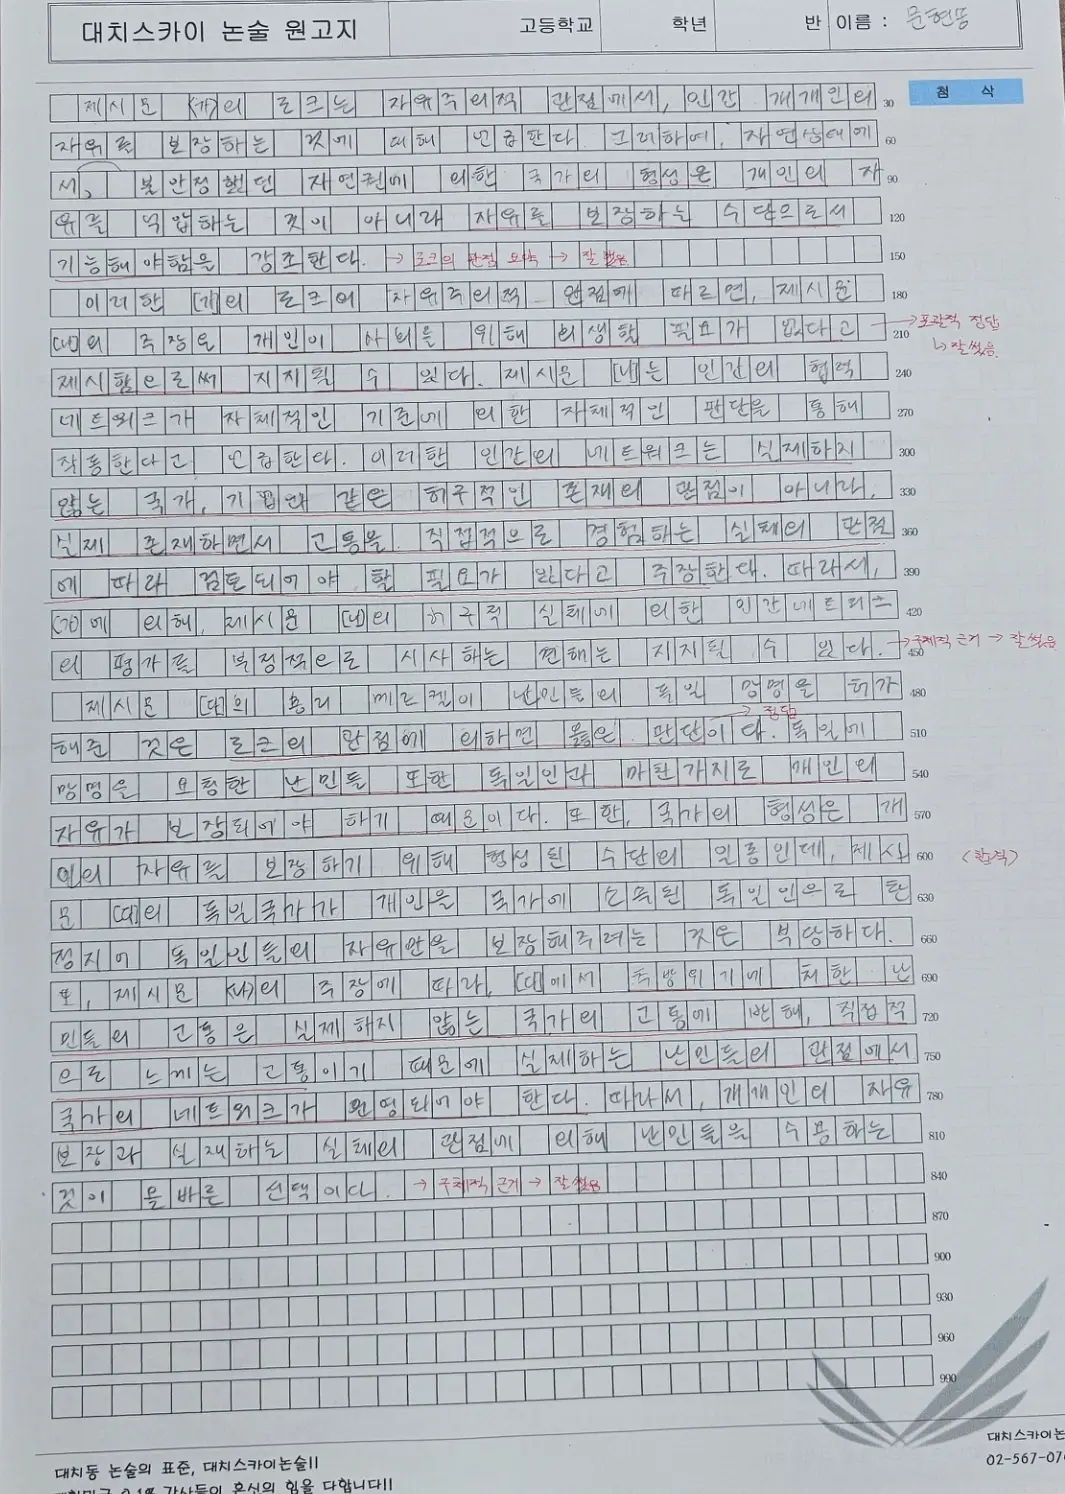 대치스카이 논술 원고지 고등학교 학년 반 이름 :
첨 삭
제시문 (가)의 로크는 자유주의적 관점에서, 인간 개개인의 30
자유를 보장하는 것에 대해 언급한다. 그러하여, 자연상태에 60
서, 불안정했던 자연권에 의한 국가의 형성은 개인의 자 90
유를 억압하는 것이 아니라 자유를 보장하는 수단으로서 120
기능해야함을 강조한다. → 로크의 관점 요약 → 잘 썼음 150
이러한 (가)의 로크의 자유주의적 관점에 따르면, 제시문 180
(나)의 주장은 개인이 사회를 위해 희생할 필요가 없다고 210 → 포괄적 정답
↳ 잘 썼음.
제시함으로써 지지될 수 있다. 제시문 (나)는 인간의 협력 240
네트워크가 자체적인 기준에 의한 자체적인 판단을 통해 270
작동한다고 언급한다. 이러한 인간의 네트워크는 실제하지 300
않는 국가, 기업과 같은 허구적인 존재의 관점이 아니라, 330
실제 존재하면서 고통을 직접적으로 경험하는 실체의 관점 360
에 따라 검토되어야 할 필요가 있다고 주장한다. 따라서, 390
(가)에 의해, 제시문 (나)의 허구적 실체에 의한 인간네트워크 420
의 평가를 부정적으로 시사하는 견해는 지지될 수 있다. 450 → 구체적 근거 → 잘 썼음
제시문 (다)의 총리 메르켈이 난민들의 독일 망명을 허가 480
해준 것은 로크의 관점에 의하면 옳은 판단이다. 독일에 510
→ 정답
망명을 요청한 난민들 또한 독일인과 마찬가지로 개인의 540
자유가 보장되어야 하기 때문이다. 또한, 국가의 형성은 개 570
인의 자유를 보장하기 위해 형성된 수단의 일종인데, 제시 600
문 (다)의 독일국가가 개인을 국가에 소속된 독일인으로 한 630
정지어 독일인들의 자유만을 보장해주려는 것은 부당하다. 660
또, 제시문 (나)의 주장에 따라, (다)에서 추방위기에 처한 난 690
민들의 고통은 실제하지 않는 국가의 고통에 반해, 직접적 720
으로 느끼는 고통이기 때문에 실재하는 난민들의 관점에서 750
국가의 네트워크가 운영되어야 한다. 따라서, 개개인의 자유 780
보장과 실재하는 실체의 관점에 의해 난민들을 수용하는 810
것이 올바른 선택이다. → 구체적 근거 → 잘 썼음 840
870
900
930
960
990
대치동 논술의 표준, 대치스카이논술!!
대치스카이논
02-567-07